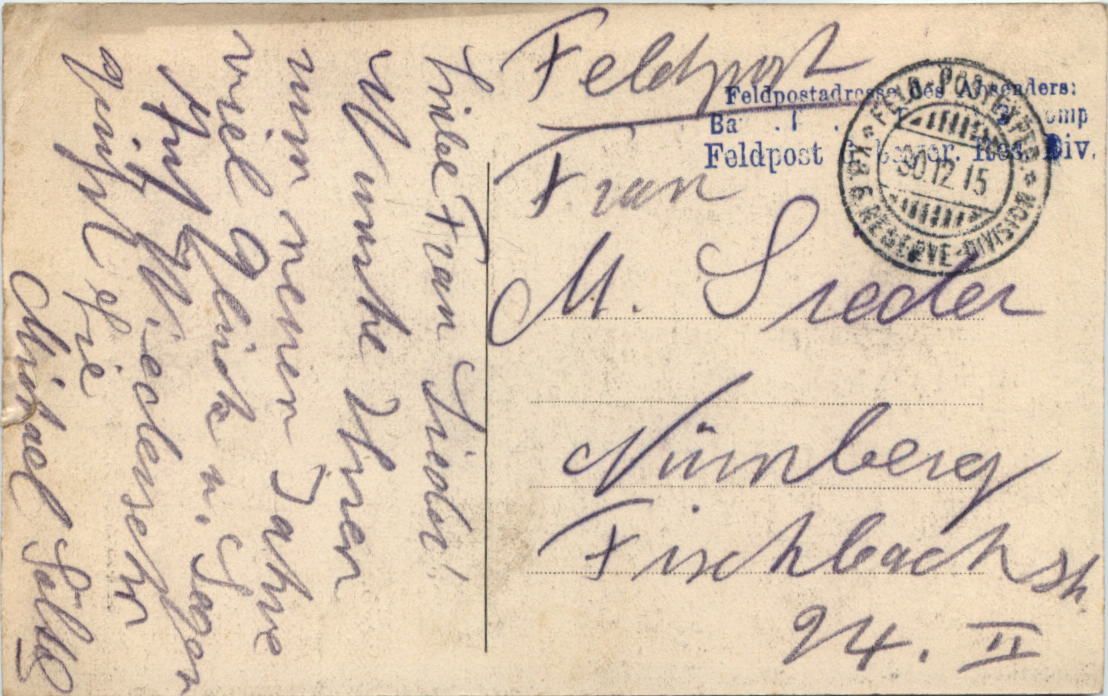 Feldpost
Feldpostadresse des Absenders:
Feldpost bayer. Res. Div.
K.B. FELD-POSTEXPED.
30.12.15
6. RESERVE-DIVISION
Frau
M. Sieder
Nürnberg
Fischbachstr.
94. II
Liebe Frau Sieder!
Wünsche Ihnen
zum neuen Jahre
viel Glück u. Segen
Auf Wiedersehn
grüßt Sie
Michael